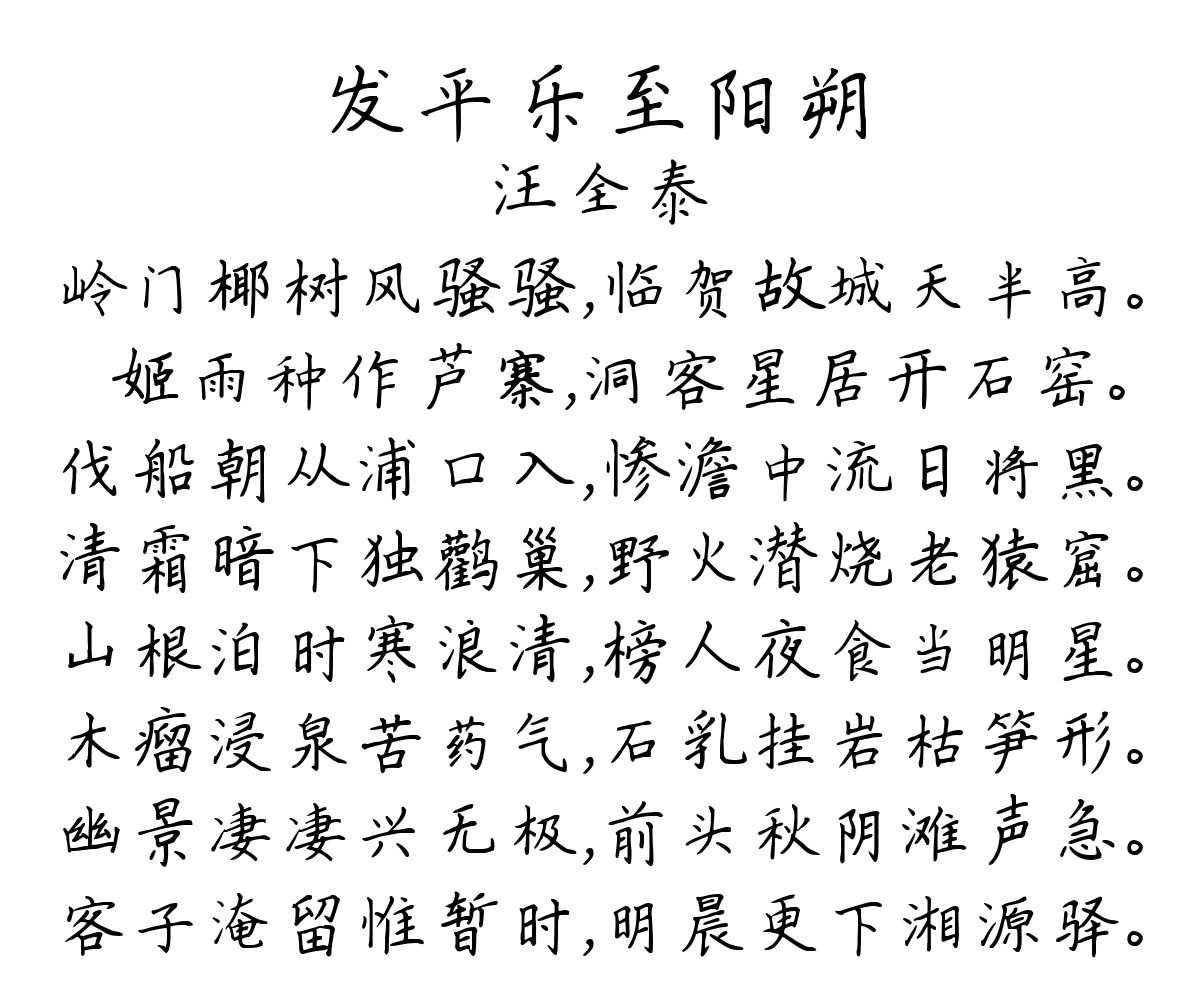 发平乐至阳朔
汪全泰
岭门椰树风骚骚,临贺故城天半高。
姬雨种作芦寨,洞客星居开石窑。
伐船朝从浦口入,惨澹中流日将黑。
清霜暗下独鹳巢,野火潜烧老猿窟。
山根泊时寒浪清,榜人夜食当明星。
木瘤浸泉苦药气,石乳挂岩枯笋形。
幽景凄凄兴无极,前头秋阴滩声急。
客子淹留惟暂时,明晨更下湘源驿。